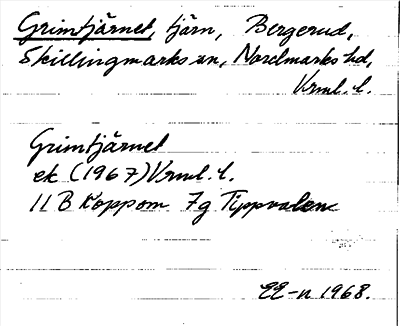 Grimtjärnet, tjärn, Bergerud,
Skillingmarks sn, Nordmarks hd,
Vrml. l.
Grimtjärnet
ek (1967) Vrml. l.
11 B Koppom 7g Tippvalen
EE-n 1968.